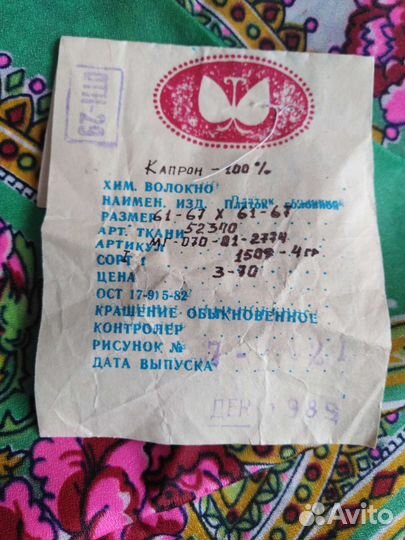 ОТК-29
Капрон - 100%
ХИМ. ВОЛОКНО
НАИМЕН. ИЗД. Платок головной
РАЗМЕР 61-67 Х 61-67
АРТ. ТКАНИ 52340
АРТИКУЛ МГ-070-81-2774
СОРТ 1 1509-4гр
ЦЕНА 3-70
ОСТ 17-915-82
КРАШЕНИЕ ОБЫКНОВЕННОЕ
КОНТРОЛЕР
РИСУНОК №
ДАТА ВЫПУСКА
ДЕК 1989
Avito